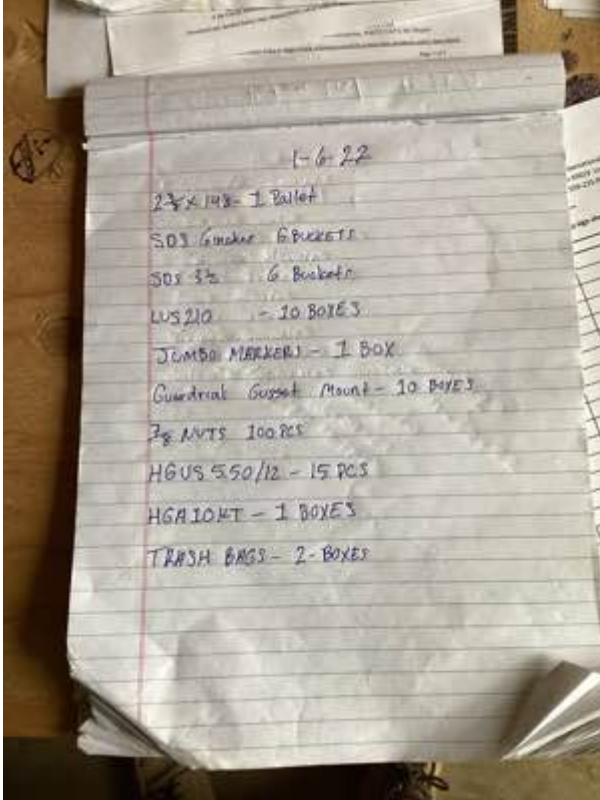 1-6-22
2⅜ x 148 - 1 Pallet
SDS 6inches 6 BUCKETS
SDS 3½ 6 Buckets
LUS 210 - 10 BOXES
JUMBO MARKERS - 1 BOX
Guardrial Gusset Mount - 10 BOXES
NUTS 100 PCS
HGUS 5.50/12 - 15 PCS
HGA10KT - 1 BOXES
TRASH BAGS - 2 - BOXES